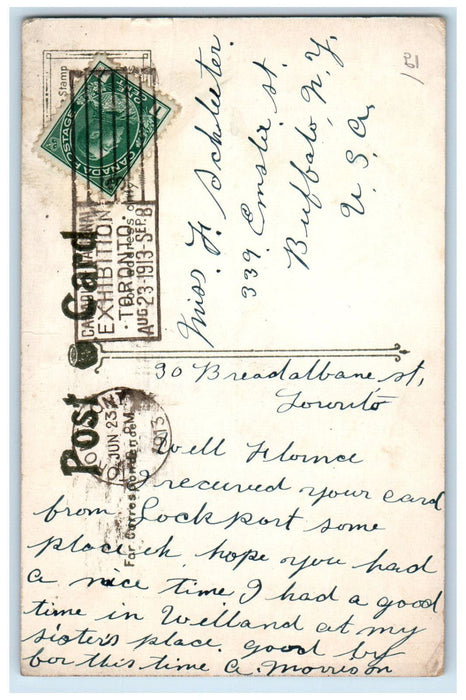 Post Card
Stamp
CANADA POSTAGE
EXHIBITION
TORONTO.
AUG.23-1913-SEP.8
For Correspondence
JUN 23
PM
1913
Miss. F. Schlueter.
339. Emslie st.
Buffalo, N. Y.
U. S. A.
30 Breadalbane st,
Toronto
Well Flornce
I received your card
from Lockport some
place eh hope you had
a nice time I had a good
time in Welland at my
sister's place. good by
for this time A. Morrison